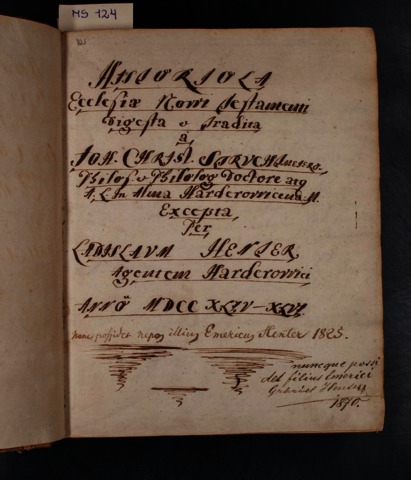 MS 124
HISTORIOLA
Ecclesiæ Novi Testamenti
Digesta & Tradita
a
JOH. CHRIST.
Philos. & Philolog. Doctore atq
A. L. In Alma Harderovicena. M.
Excepta
Per
LADISLAUM HENTER,
Agentem Harderovici
ANNÔ MDCC XXIV–XXVI
nunc possidet nepos illius Emericus Henter 1825.
nuncque possi
det filius Emerici
Gabriel Henter
1870.